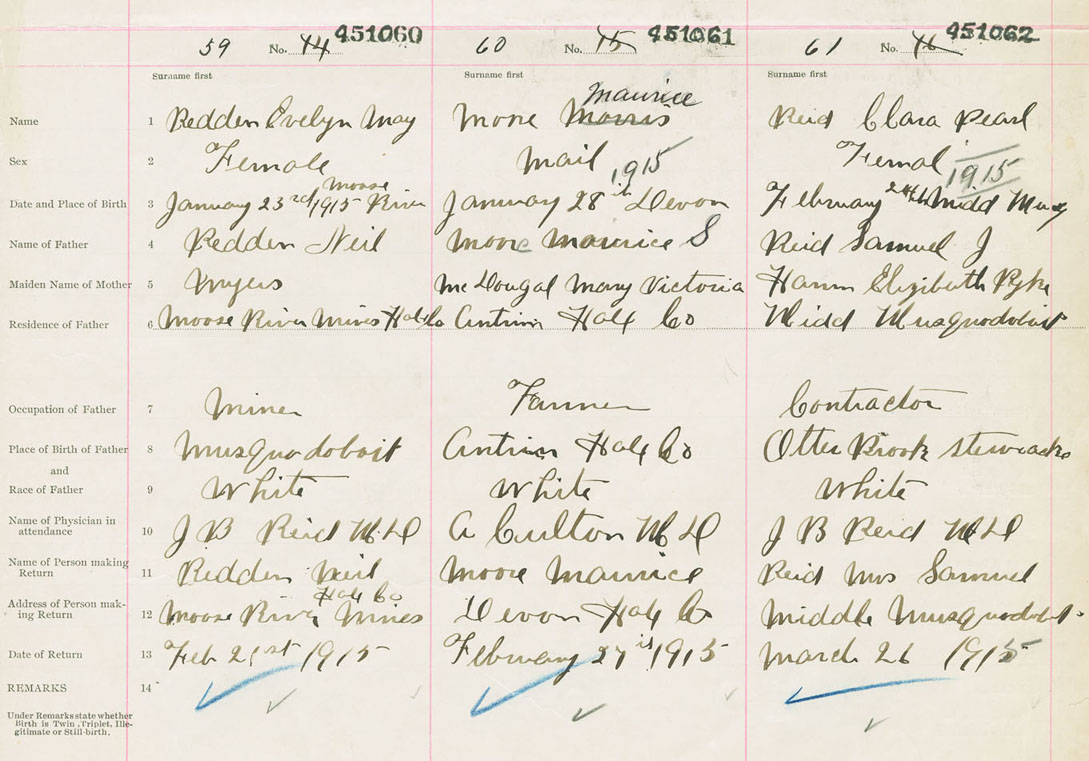 59 No. 44 451060 60 No. 45 451061 61 No. 46 451062
Surname first Surname first Surname first
Maurice
Name 1 Redden Evelyn May Moore Morris Reid Clara Pearl
Sex 2 Female Mail Femal
1915 1915
Moose
Date and Place of Birth 3 January 23rd 1915 River January 28th Devon February 24th Midd Musq
Name of Father 4 Redden Neil Moore Maurice S Reid Samuel J
Maiden Name of Mother 5 Myers McDougal Mary Victoria Elizibeth
Residence of Father 6 Moose River Mines Hali Co Antrim Half Co Midd Musquodoboit
Occupation of Father 7 Miner Farmer Contractor
Place of Birth of Father 8 Musquodoboit Antrim Half Co Otter Brook Stewiacke
and
Race of Father 9 White White White
Name of Physician in
attendance 10 J B Reid M.D A M D J B Reid M D
Name of Person making
Return 11 Redden Neil Moore Maurice Reid Mrs Samuel
Half Co
Address of Person mak-
ing Return 12 Moose River Mines Devon Half Co Middle Musquodobt.
Date of Return 13 Feb 21st 1915 February 27th 1915 March 26 1915
REMARKS 14
Under Remarks state whether
Birth is Twin, Triplet, Ille-
gitimate or Still-birth.